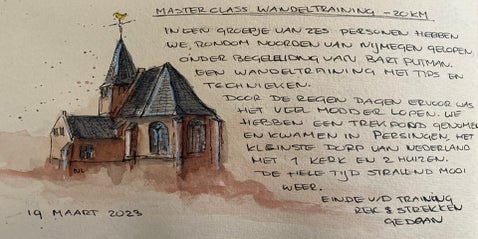 MASTERCLASS WANDELTRAINING - 20 KM
IN EEN GROEPJE VAN ZES PERSONEN HEBBEN
WE, RONDOM NOORDEN VAN NIJMEGEN GELOPEN
ONDER BEGELEIDING VAN BART PUTMAN.
EEN WANDELTRAINING MET TIPS EN
TECHNIEKEN.
DOOR DE REGEN DAGEN ERVOOR WAS
HET VEEL MODDER LOPEN. WE
HEBBEN EEN TREKPOND GENOMEN
EN KWAMEN IN PERSINGEN, HET
KLEINSTE DORP VAN NEDERLAND
MET 1 KERK EN 2 HUIZEN.
DE HELE TIJD STRALEND MOOI
WEER.
EINDE V/D TRAINING
REK & STREKKEN
GEDAAN
19 MAART 2023